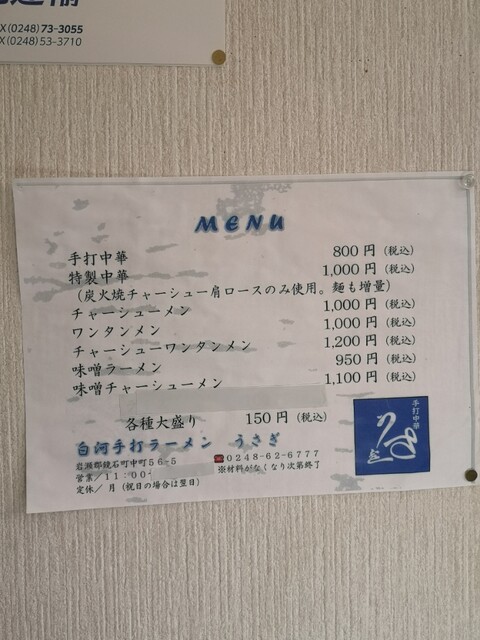 X(0248)73-3055
X(0248)53-3710
MENU
手打中華 800円(税込)
特製中華 1,000円(税込)
(炭火焼チャーシュー肩ロースのみ使用。麺も増量)
チャーシューメン 1,000円(税込)
ワンタンメン 1,000円(税込)
チャーシューワンタンメン 1,200円(税込)
味噌ラーメン 950円(税込)
味噌チャーシューメン 1,100円(税込)
各種大盛り 150円(税込)
白河手打ラーメン うさぎ
岩瀬郡鏡石町中町56-5 ☎0248-62-6777
営業/11:00- ※材料がなくなり次第終了
定休/月(祝日の場合は翌日)
手打中華
うさぎ